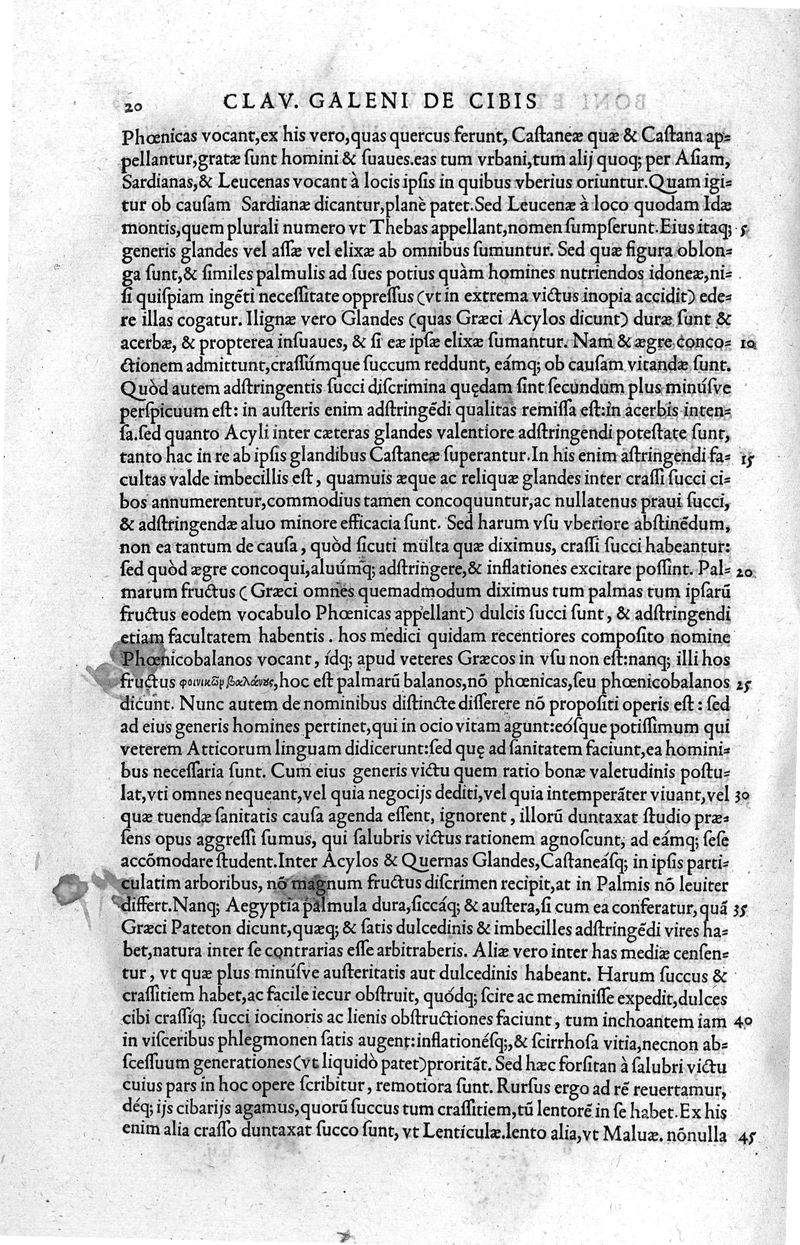 20 CLAV. GALENI DE CIBIS
Phœnicas vocant,ex his vero,quas quercus ferunt, Castaneæ quæ & Castana ap=
pellantur,gratæ sunt homini & suaues.eas tum vrbani,tum alij quoq; per Asiam,
Sardianas,& Leucenas vocant à locis ipsis in quibus vberius oriuntur.Quam igi=
tur ob causam Sardianæ dicantur,planè patet.Sed Leucenæ à loco quodam Idæ
montis,quem plurali numero vt Thebas appellant,nomen sumpserunt.Eius itaq; 5
generis glandes vel assæ vel elixæ ab omnibus sumuntur. Sed quæ figura oblon=
ga sunt,& similes palmulis ad sues potius quàm homines nutriendos idoneæ,ni=
si quispiam ingẽti necessitate oppressus (vt in extrema victus inopia accidit) ede=
re illas cogatur. Ilignæ vero Glandes (quas Græci Acylos dicunt) duræ sunt &
acerbæ, & propterea insuaues, & si eæ ipsæ elixæ sumantur. Nam & ægre conco= 10
ctionem admittunt,crassúmque succum reddunt, eámq; ob causam vitandæ sunt.
Quòd autem adstringentis succi discrimina quędam sint secundum plus minúsve
perspicuum est: in austeris enim adstringẽdi qualitas remissa est:in acerbis inten=
sa.sed quanto Acyli inter cæteras glandes valentiore adstringendi potestate sunt,
tanto hac in re ab ipsis glandibus Castaneæ superantur.In his enim astringendi fa= 15
cultas valde imbecillis est, quamuis æque ac reliquæ glandes inter crassi succi ci=
bos annumerentur,commodius tamen concoquuntur,ac nullatenus praui succi,
& adstringendæ aluo minore efficacia sunt. Sed harum vsu vberiore abstinẽdum,
non ea tantum de causa, quòd sicuti multa quæ diximus, crassi succi habeantur:
sed quòd ægre concoqui,aluúmq; adstringere,& inflationes excitare possint. Pal= 20
marum fructus (Græci omnes quemadmodum diximus tum palmas tum ipsarũ
fructus eodem vocabulo Phœnicas appellant) dulcis succi sunt, & adstringendi
etiam facultatem habentis. hos medici quidam recentiores composito nomine
Phœnicobalanos vocant, ídq; apud veteres Græcos in vsu non est:nanq; illi hos
fructus φοινικῶν βαλάνους,hoc est palmarũ balanos,nõ phœnicas,seu phœnicobalanos 25
dicunt. Nunc autem de nominibus distincte disserere nõ propositi operis est: sed
ad eius generis homines pertinet,qui in ocio vitam agunt:eósque potissimum qui
veterem Atticorum linguam didicerunt:sed quę ad sanitatem faciunt,ea homini=
bus necessaria sunt. Cum eius generis victu quem ratio bonæ valetudinis postu=
lat,vti omnes nequeant,vel quia negocijs dediti,vel quia intemperãter viuant,vel 30
quæ tuendæ sanitatis causa agenda essent, ignorent, illorũ duntaxat studio præ=
sens opus aggressi sumus, qui salubris victus rationem agnoscunt, ad eámq; sese
accõmodare student.Inter Acylos & Quernas Glandes,Castaneásq; in ipsis parti=
culatim arboribus, nõ magnum fructus discrimen recipit,at in Palmis nõ leuiter
differt.Nanq; Aegyptia palmula dura,siccáq; & austera,si cum ea conferatur,quã 35
Græci Pateton dicunt,quæq; & satis dulcedinis & imbecilles adstringẽdi vires ha=
bet,natura inter se contrarias esse arbitraberis. Aliæ vero inter has mediæ censen=
tur, vt quæ plus minúsve austeritatis aut dulcedinis habeant. Harum succus &
crassitiem habet,ac facile iecur obstruit, quódq; scire ac meminisse expedit,dulces
cibi crassíq; succi iocinoris ac lienis obstructiones faciunt, tum inchoantem iam 40
in visceribus phlegmonen satis augent:inflationésq;,& scirrhosa vitia,necnon ab=
scessuum generationes(vt liquidò patet)proritãt. Sed hæc forsitan à salubri victu
cuius pars in hoc opere scribitur, remotiora sunt. Rursus ergo ad rẽ reuertamur,
déq; ijs cibarijs agamus,quorũ succus tum crassitiem,tũ lentorẽ in se habet.Ex his
enim alia crasso duntaxat succo sunt, vt Lentículæ.lento alia,vt Maluæ. nõnulla 45